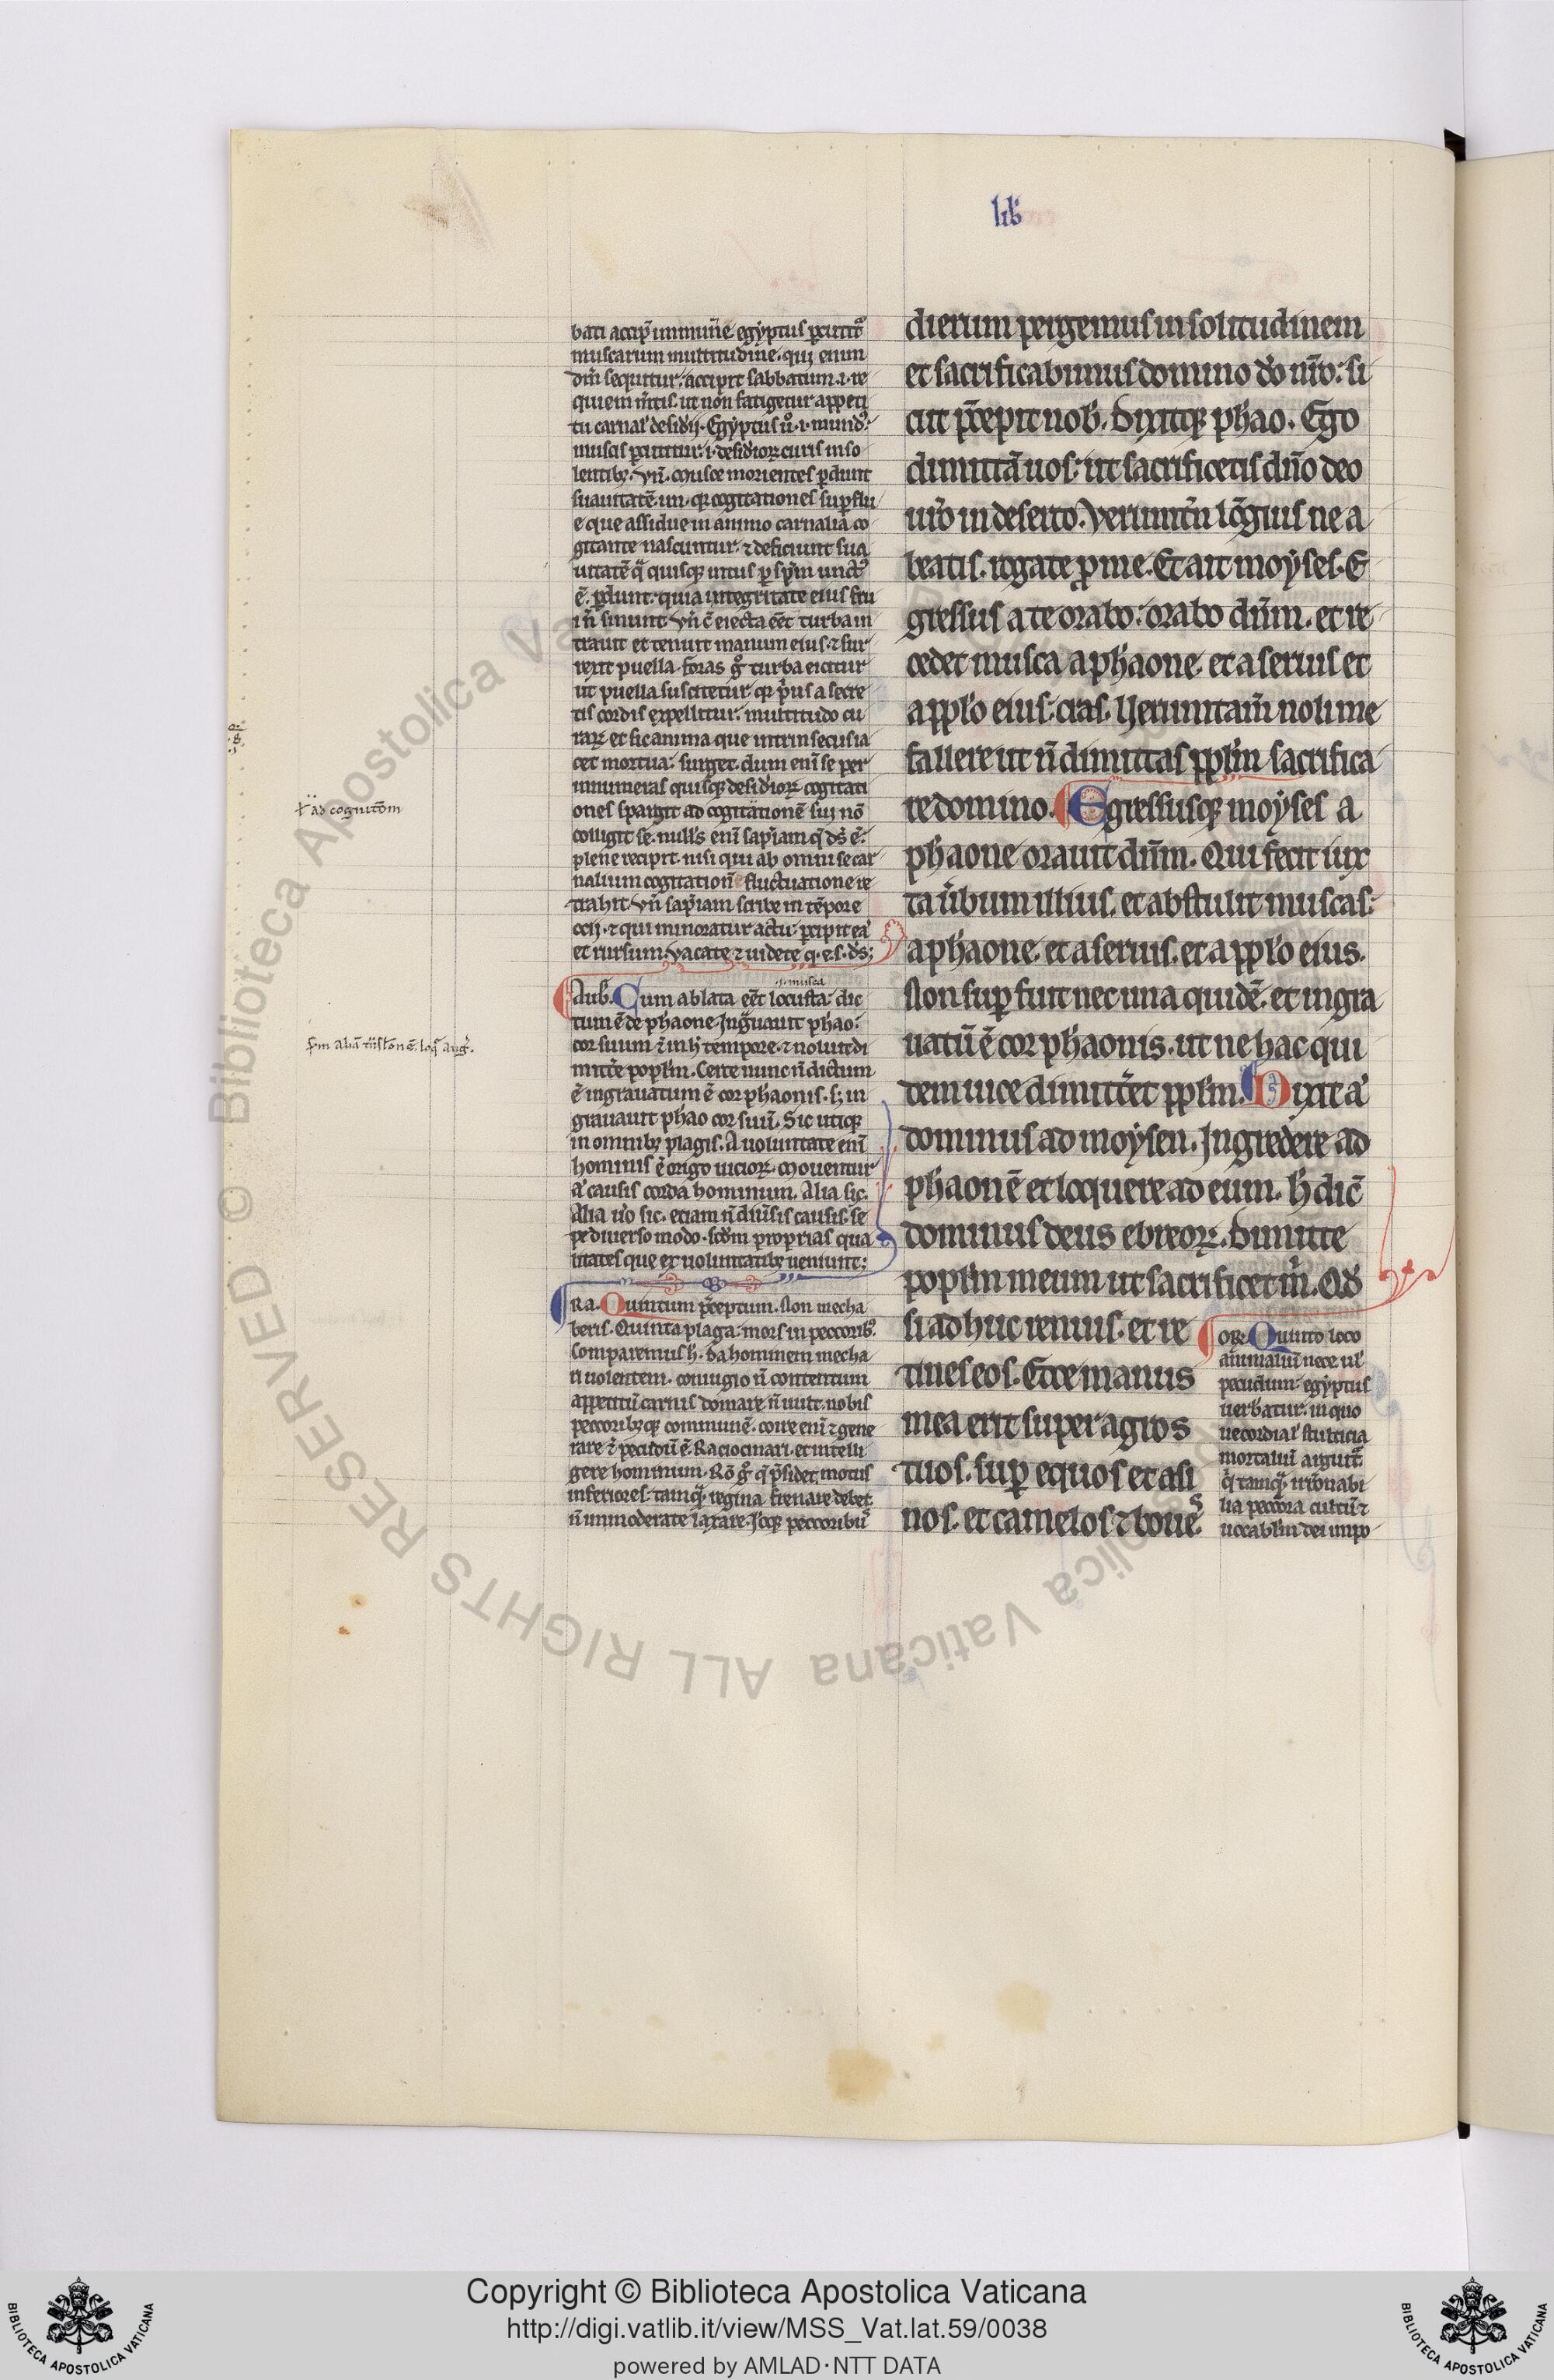 lib̃
bati accip̃ inmun̄e egyptus ꝑcutit᷑
muscarum multitudine. qui enim
dm̄ sequitur: accipit sabbatum .i. re
quiem m̄tis. ut non fatigetur appeti
tu carnal' desid'ij. Egyptus ů .i. mund9
muscis ꝑcutitur: i. desid'ioꝝ curis inso
lentibꝫ. Vn̄. Musce morientes ꝑdunt
suauitatē un. qꝛ cogitationes suꝑflu
e que assidue in animo carnalia co
gitante nascuntur. ⁊ deficiunt sua
uitatē q̄ quisqꝫ intus ꝑ sp̄m unct9
ē. ꝑdunt. quia integritate eius fru
i n̄ sinunt. Vn̄ c̄ eiecta eēt turba in
trauit et tenuit manum eius. ⁊ sur
rexit puella. foras g° turba eicitur
ut puella suscitetur. qꝛ p'us a secre
tis cordis expellitur. multitudo cu
raꝝ et sic anima que intrinsecus ia
cet mortua: surget. dum eni se per
innumeras quisqꝫ desid'ioꝝ cogitati
ones spargit ad cogitationē sui nō
colligit se. null's eni sapīam q̄ ds̄ ē.
plene recipit. nisi qui ab omni se car
nalium cogitationū fluctuatione re
trahit. Vn̄ sapīam scribe in tēpore
ocij. ⁊ qui minoratur actu: ꝑcipit eā
et rursum. Vacate ⁊ uidete q. e. s. ds̄;
.i. musca
Aub̃. Cum ablata eēt locusta: dic
tum ē de pharaone. Ingrauauit phao:
cor suum ⁊ in h' tempore. ⁊ noluit di
mitt'e popl'm. Certe nunc n̄ dictum
ē ingrauatum ē cor pharaonis. sꝫ in
grauauit phao cor suū. Sic utiqꝫ
in omnibꝫ plagis. A uoluntate enī
hominis ē origo uicioꝝ. Mouentur
a' causis corda hominum. Alia sic.
Alia u'o sic. etiam n̄ diu'sis causis. se
pe diuerso modo. scd'm proprias qua
litates que ex uoluntatibꝫ ueniunt;
Ra. Quintum p̄ceptum. Non mecha
beris. Quinta plaga: mors in peccorib9.
Comparemus h'. da hominem mecha
ri uolentem. coniugio n̄ contentum
appetitū carnis domare n̄ uult. nobis
peccoribꝫqꝫ communē. coire enī ⁊ gene
rare ⁊ pecudū ē. Raciocinari. et intelli
gere hominum. Rō g° q̄ p̄sidet, motus
inferiores. tamq̄ regina frenare debet.
n̄ inmoderate laxare. Icqꝫ peccorib9
dierum pergemus in solitudinem
et sacrificabimus domino do nr̄o: si
cut p̄cepit nob̃. Dixitqꝫ phao. Ego
dimittā uos: ut sacrificetis dn̄o deo
uro in deserto. Verumtn̄ lōgius ne a
beatis. rogate ꝓ me. Et ait moyses. E
gressus a te orabo: orabo dn̄m. et re
cedet musca a phaone. et a seruis et
appl'o eius. cras. Verumtam̄ noli me
fallere ut n̄ dimittas ppl'm sacrifica
re domino. Egressusqꝫ moyses a
phaone orauit dn̄m. Qui fecit iux
ta u'bum illius. et abstulit muscas:
a phaone. et a seruis. et a ppl'o eius.
Non suꝑfuit nec una quidē. et ingra
uatū ē cor phaonis. ut ne hac qui
dem uice dimitt'et ppl'm. Dixit a'
dominus ad moysen. Ingredere ad
phaonē et loquere ad eum. h' dic̄
dominus deus ebreoꝝ. Dimitte
popl'm meum ut sacrificet m'. Qd'
si adhuc renuis. et re
tines eos. Ecce manus
mea erit super agros
tuos. suꝑ equos et asi
nos. et camelos ⁊ boues.
Or. Quinto loco
animaliū nece ul'
pecudum: egyptus
uerb'atur. in quo
uecordia' stulticia
mortaliū arguit᷑
q' tamq̄ irrōnabi
lia peccora cultū ⁊
uocabl'm dei impo
ł ad cognitōm
s'm aliā t̄nsl'onē. loq' aug'.
© Biblioteca Apostolica Vaticana ALL RIGHTS RESERVED
Copyright © Biblioteca Apostolica Vaticana
http://digi.vatlib.it/view/MSS_Vat.lat.59/0038
powered by AMLAD·NTT DATA
BIBLIOTECA APOSTOLICA VATICANA
BIBLIOTECA APOSTOLICA VATICANA